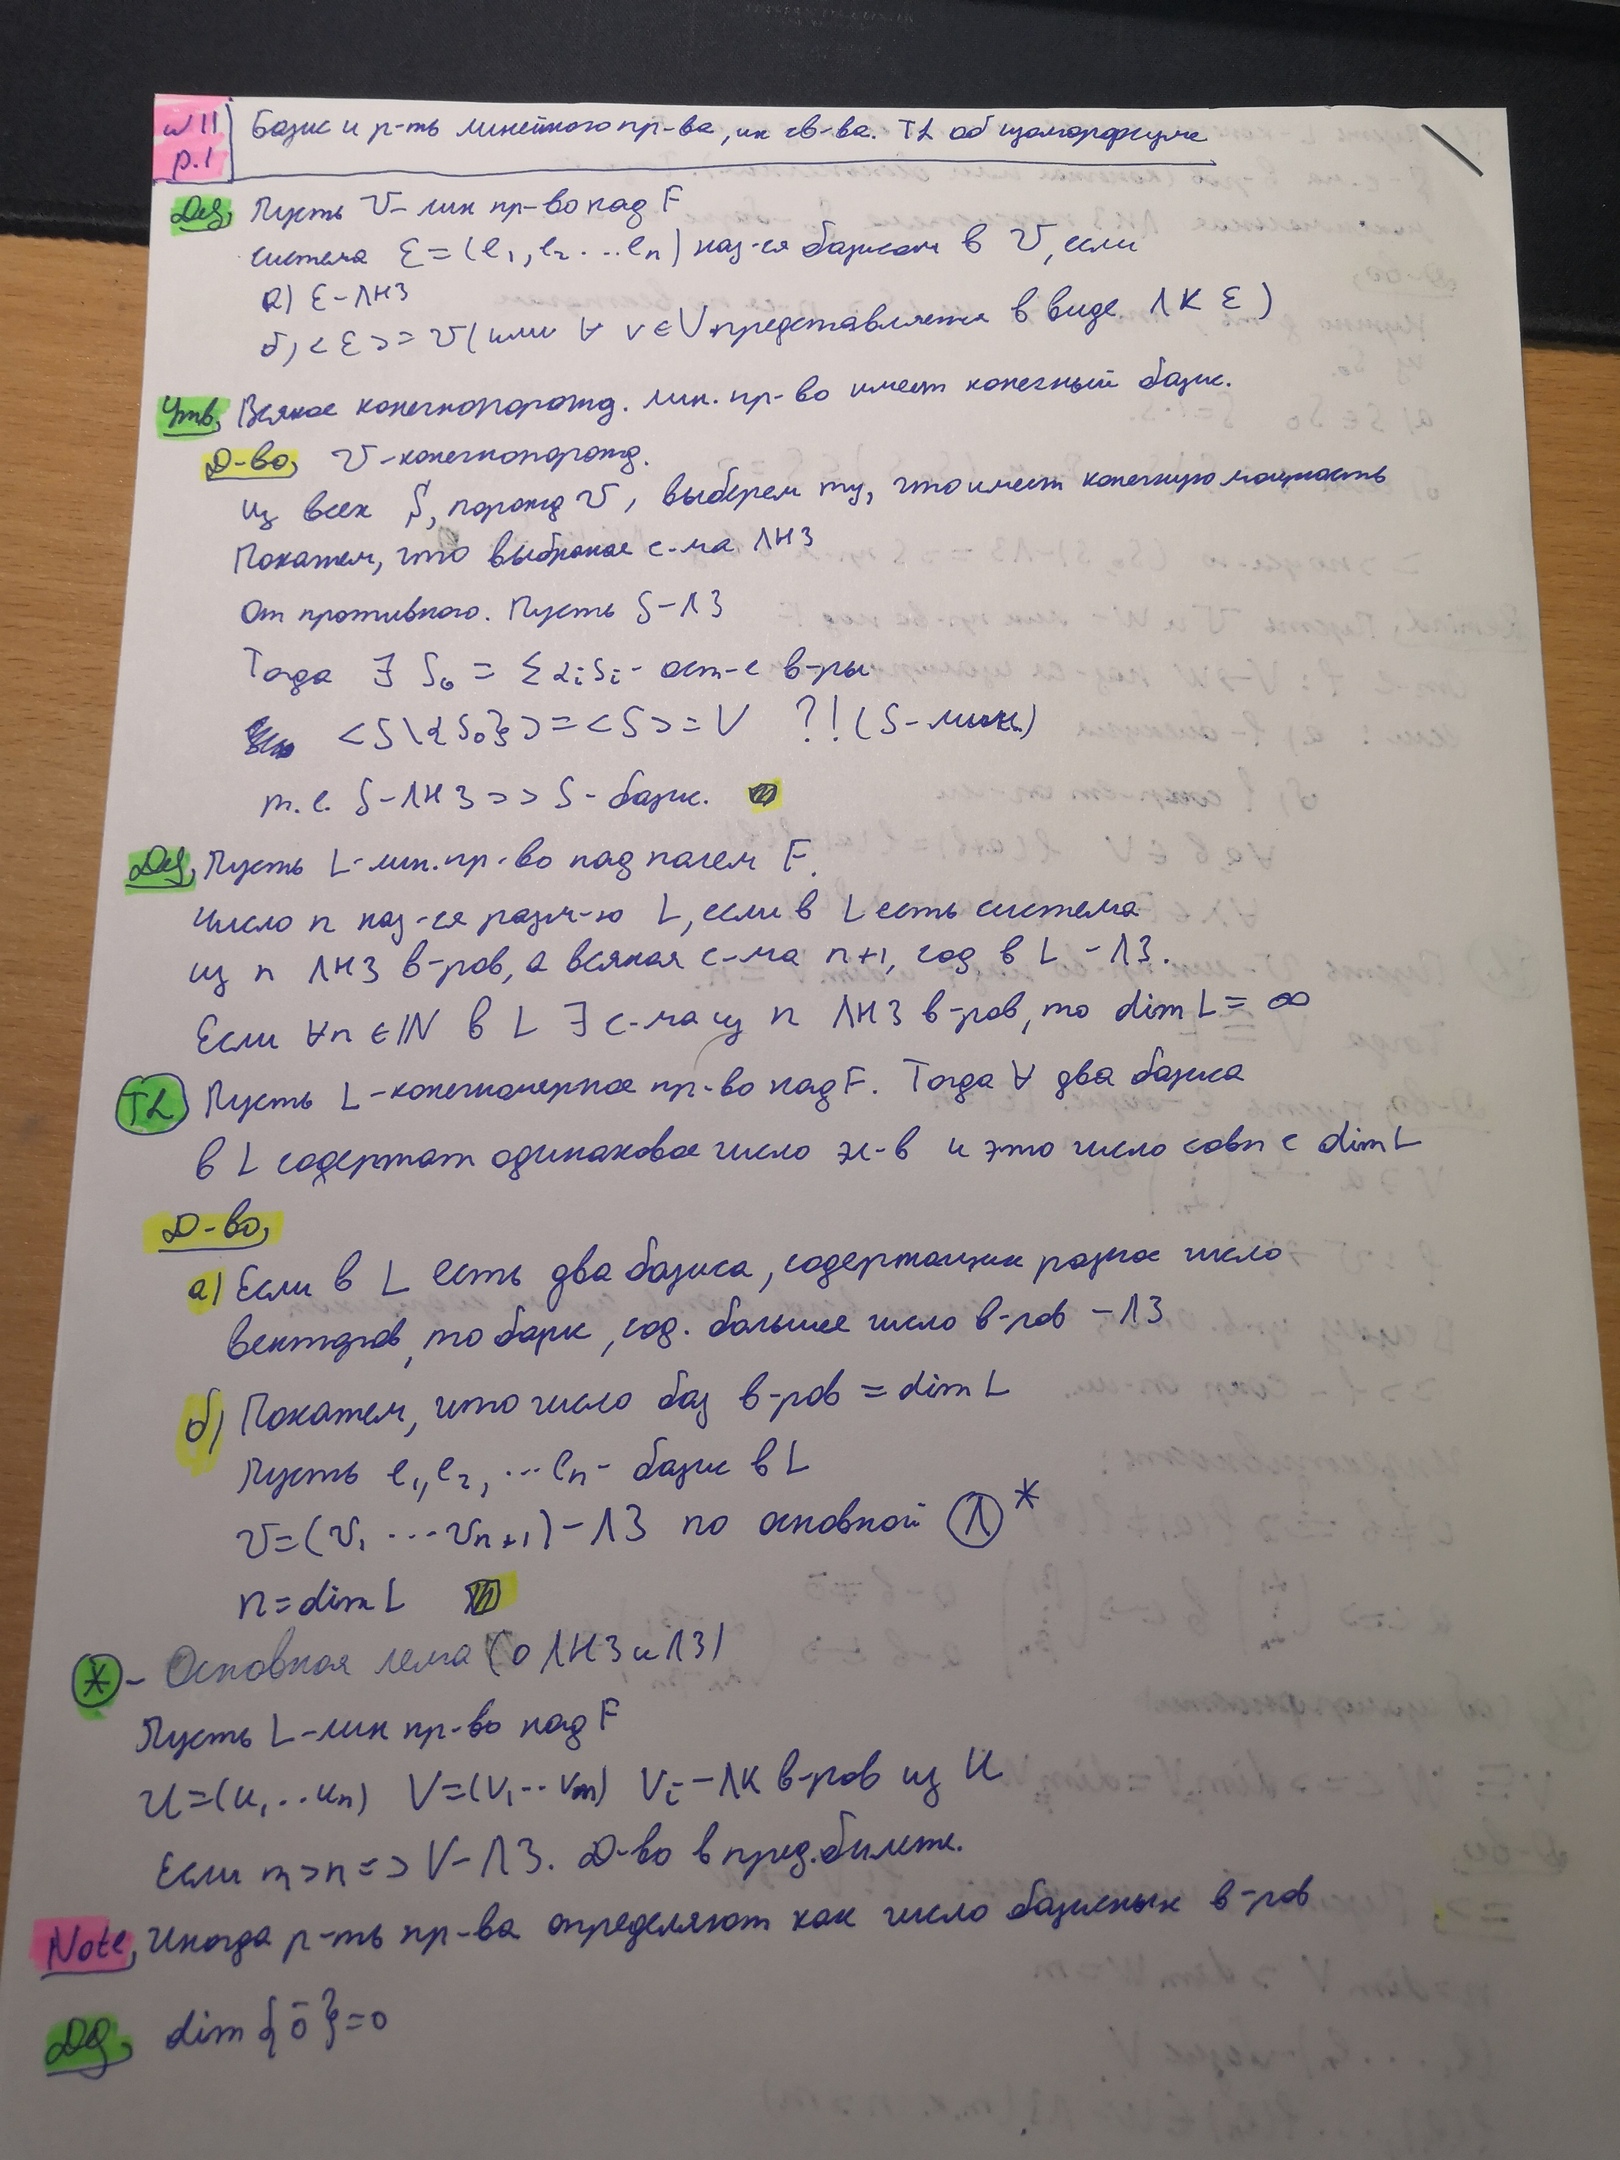 №11 Базис и р-ть линейного пр-ва, их св-ва. Th об изоморфизме
p.1
Def, Пусть V - лин пр-во над F
система Ɛ = (e₁, e₂ ... eₙ) наз-ся базисом в V, если
а) Ɛ - ЛНЗ
б) <Ɛ> = V (или ∀ v ∈ V представляется в виде ЛК Ɛ)
Утв, Всякое конечнопорожд. лин. пр-во имеет конечный базис.
Д-во, V - конечнопорожд.
Из всех S, порожд V, выберем ту, что имеет конечную мощность
Покажем, что выбранная с-ма ЛНЗ
От противного. Пусть S - ЛЗ
Тогда ∃ S₀ = Σαᵢsᵢ - ост-е в-ры
<S\{S₀}> = <S> = V ?! (S - мин.)
т.е. S - ЛНЗ => S - базис.
Def, Пусть L - лин. пр-во над полем F.
Число n наз-ся разм-ю L, если в L есть система
из n ЛНЗ в-ров, а всякая с-ма n+1, сод в L - ЛЗ.
Если ∀n ∈ ℕ в L ∃ с-ма из n ЛНЗ в-ров, то dim L = ∞
Th Пусть L - конечномерное пр-во над F. Тогда ∀ два базиса
в L содержат одинаковое число эл-в и это число совп с dim L
Д-во,
а) Если в L есть два базиса, содержащих разное число
векторов, то базис, сод. большее число в-ров - ЛЗ
б) Покажем, что число баз в-ров = dim L
Пусть e₁, e₂, ... eₙ - базис в L
V = (v₁ ... vₙ₊₁) - ЛЗ по основной Л *
n = dim L
* - Основная лема (о ЛНЗ и ЛЗ)
Пусть L - лин пр-во над F
U = (u₁ .. uₙ) V = (v₁ .. vₘ) Vᵢ - ЛК в-ров из U
Если m > n => V - ЛЗ. Д-во в пред. билете.
Note, Иногда р-ть пр-ва определяют как число базисных в-ров
Def, dim {ō} = 0